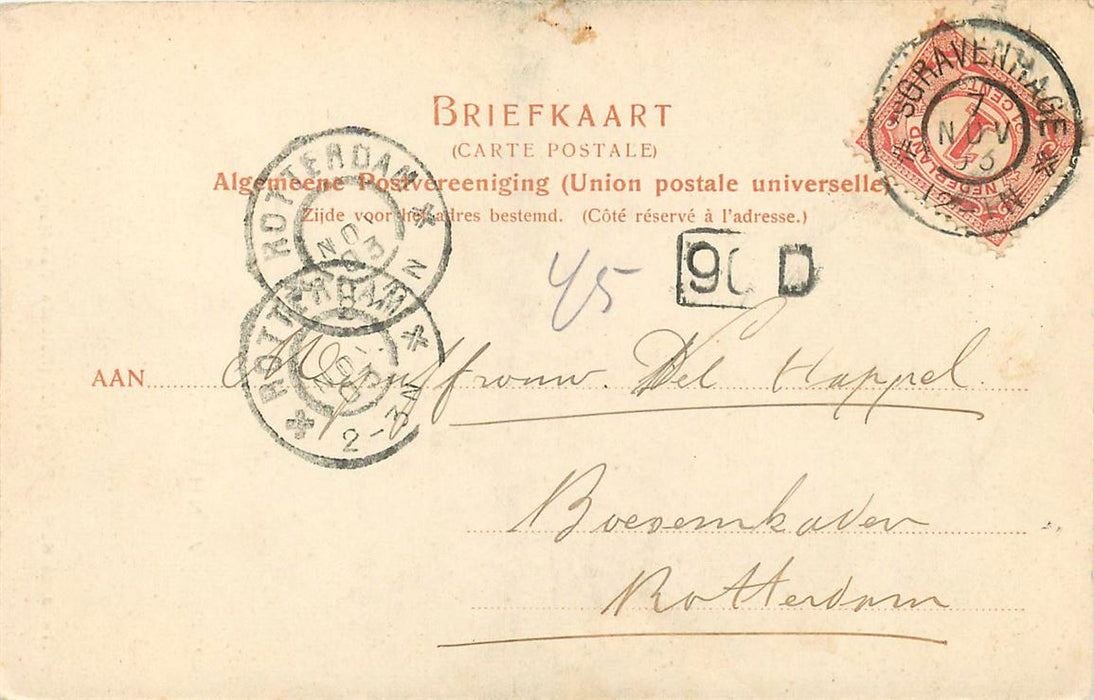 BRIEFKAART
(CARTE POSTALE)
Algemeene Postvereeniging (Union postale universelle)
Zijde voor het adres bestemd. (Côté réservé à l'adresse.)
'SGRAVENHAGE
7
NOV
ROTTERDAM
NOV
03
N
ROTTERDAM
NOV
03
2-3N
45
90 D
AAN Mejuffrouw. Del Happel.
Boezemkaden
Rotterdam